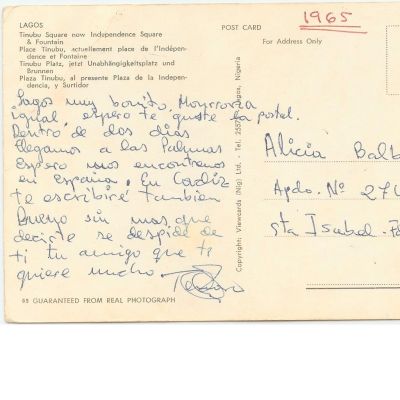 LAGOS
Tinubu Square now Independence Square
& Fountain
Place Tinubu, actuellement place de l'Indépen-
dence et Fontaine
Tinubu Platz, jetzt Unabhängigkeitsplatz und
Brunnen
Plaza Tinubu, al presente Plaza de la Indepen-
dencia, y Surtidor
Lagos muy bonito. Monrrovia
igual, espero te guste la postal.
Dentro de dos dias
llegamos a las Palmas
Espero nos encontremos
en España. En Cadiz
te escribiré tambien
Bueno sin mas que
decirte se despide de
ti tu amigo que te
quiere mucho
65 GUARANTEED FROM REAL PHOTOGRAPH
Copyright: Viewcards (Nig) Ltd. - Tel. Lagos, Nigeria
POST CARD
1965
For Address Only
Alicia Balb
Apdo. Nº 274
Sta Isabel-